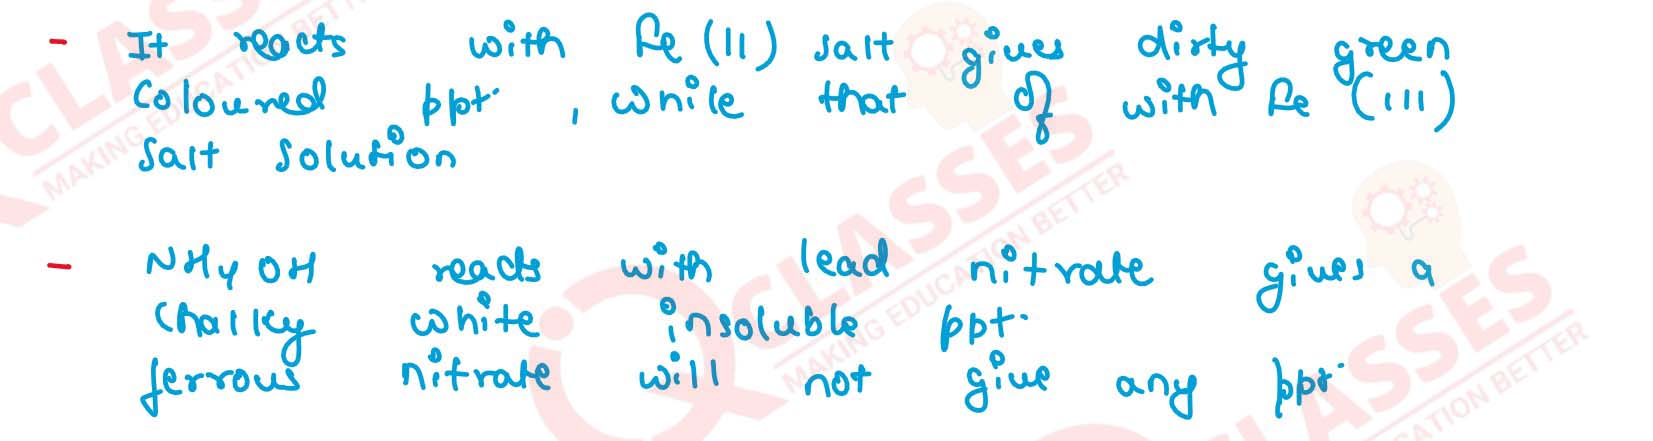 - It reacts with Fe (II) salt gives dirty green
coloured ppt. , while that of with Fe (III)
salt solution
- NH4OH reacts with lead nitrate gives a
chalky white insoluble ppt.
ferrous nitrate will not give any ppt.
CLASSES
MAKING EDUCATION BETTER
CLASSES
MAKING EDUCATION BETTER
CLASSES
CATION BETTER